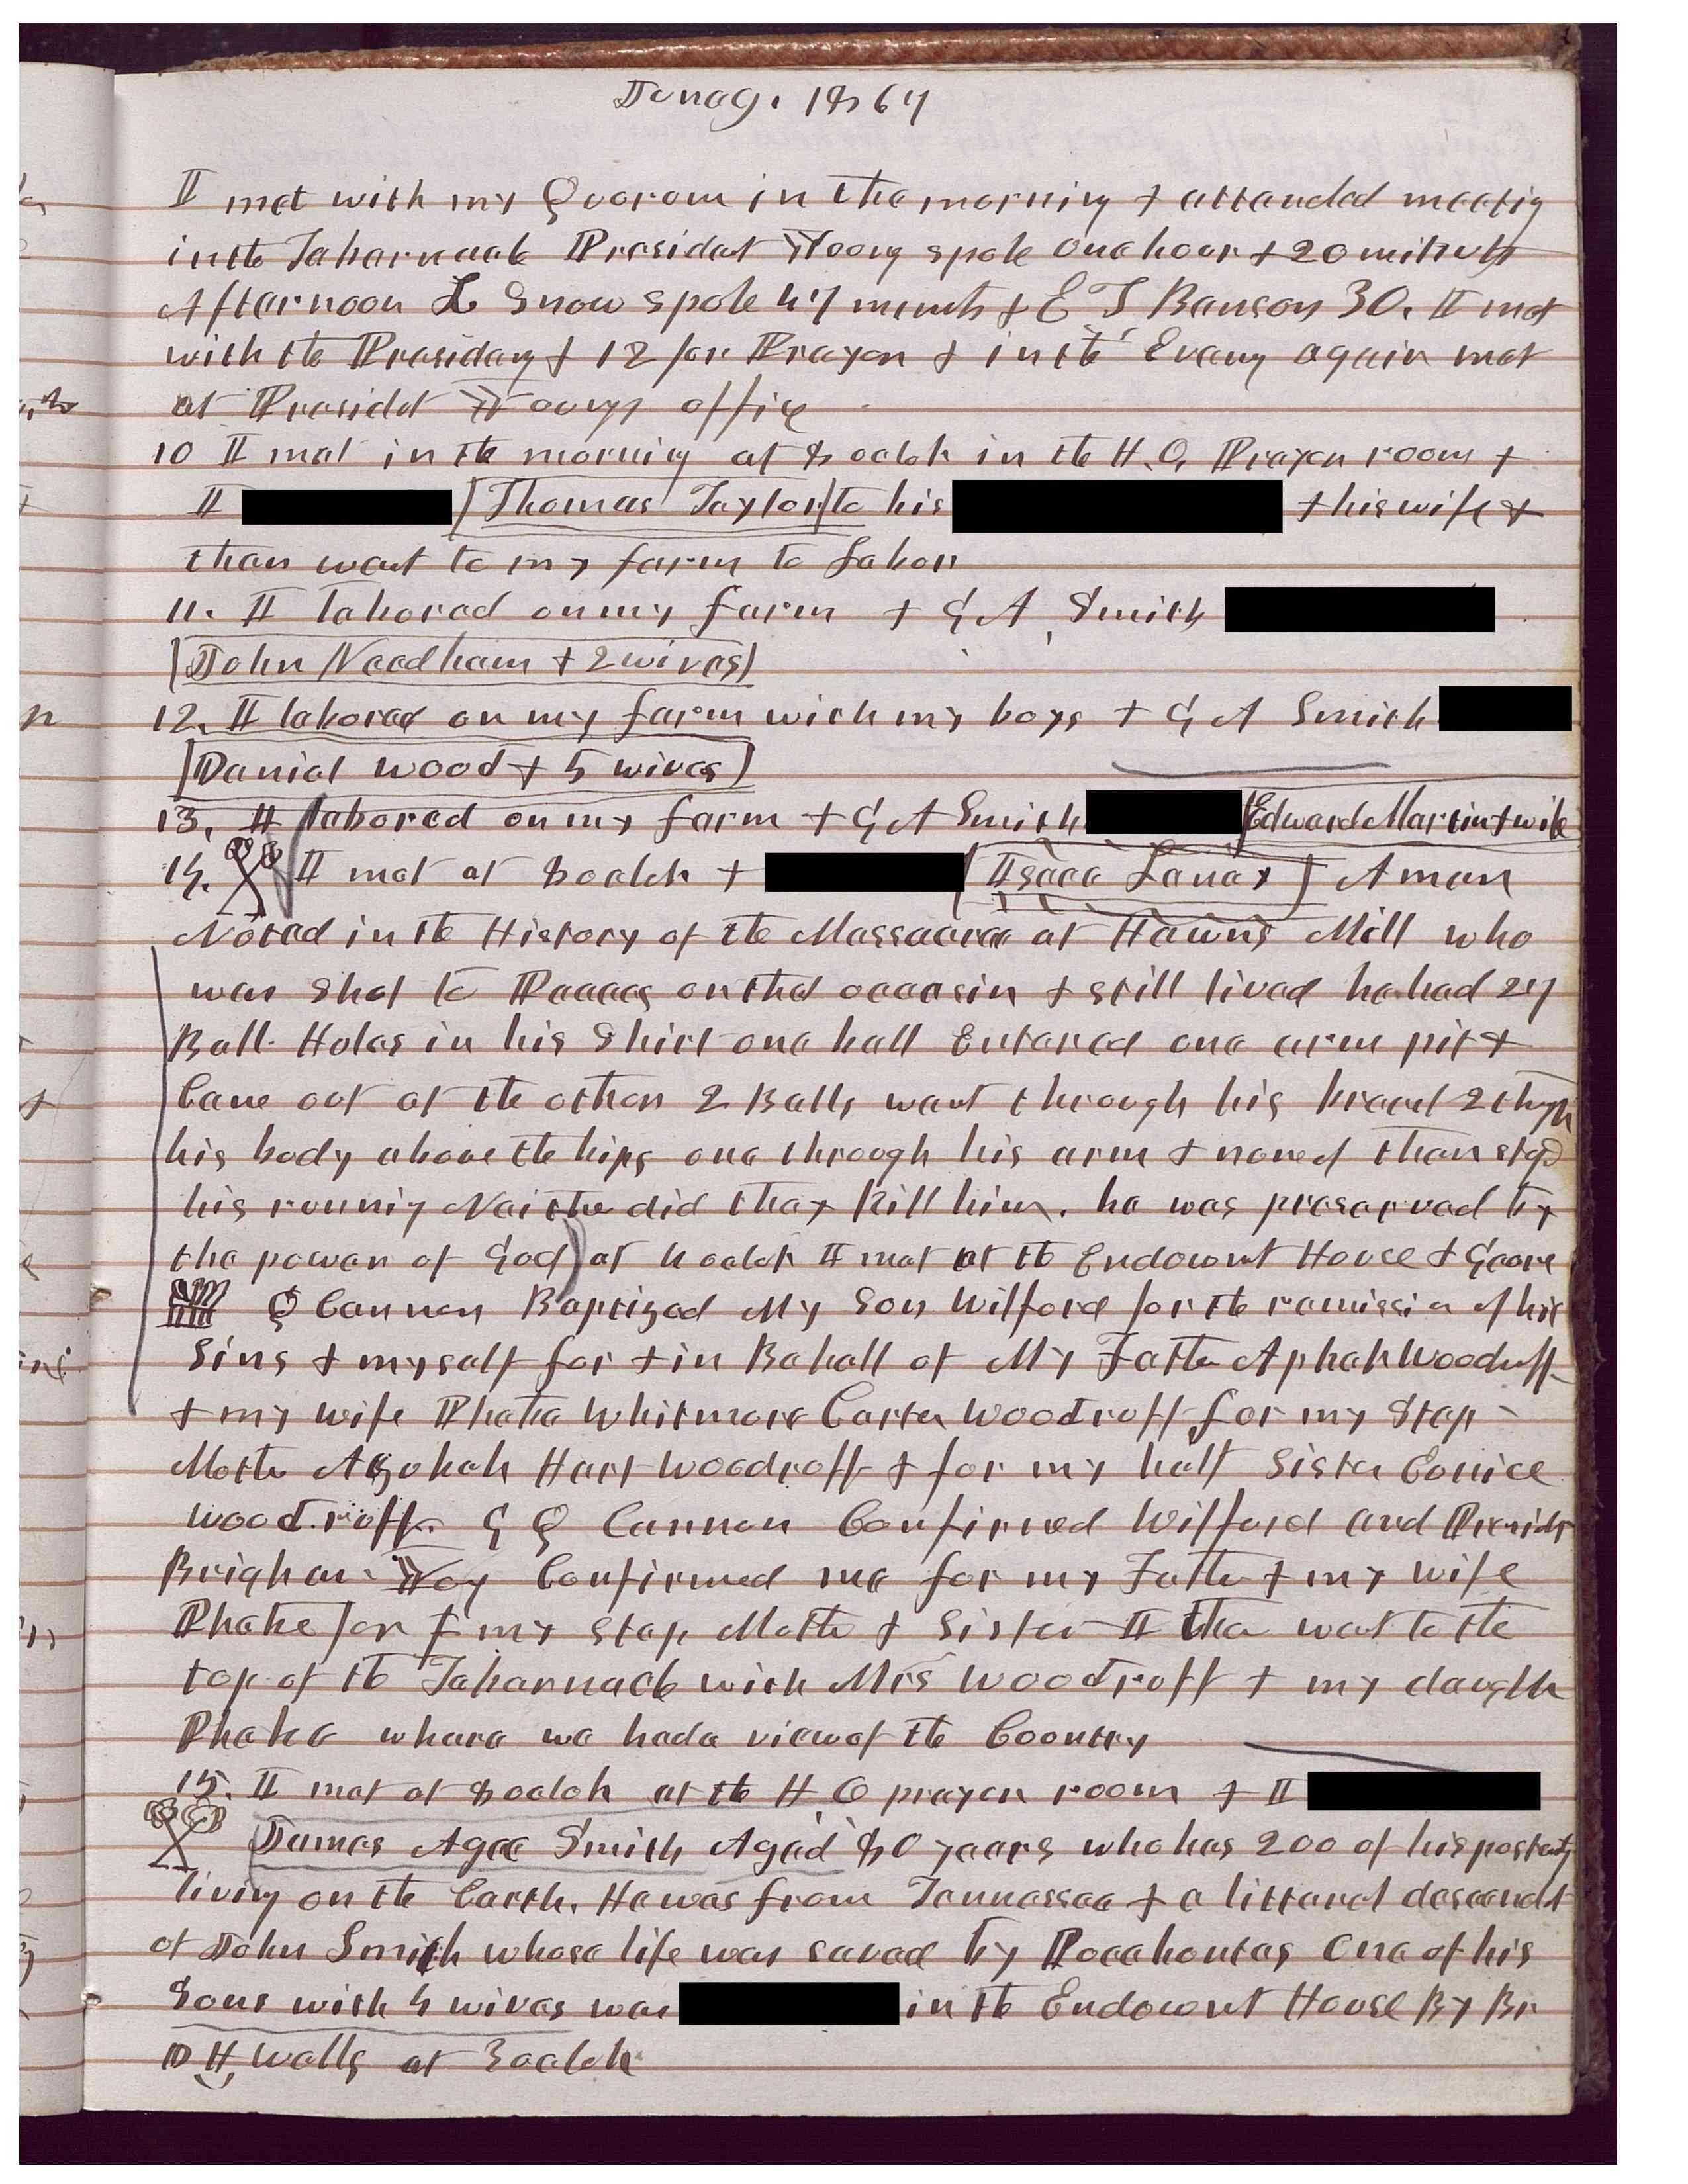 June 9. 1867
I met with my Quorum in the morning & attended meetig
in the Tabernacle President Young spoke one hour & 20 minuts
Afternoon L Snow spoke 47 minuts & E T Benson 30. I met
with the Presidency & 12 for Prayer & in the Eveng again met
at Presidet Youngs office
10 I met in the morning at 8 oclok in the H.O. Prayer room &
I [Thomas Taylor] to his & his wife &
then went to my farm to Labor
11. I labored on my farm & G A Smith
[John Needham & 2 wives]
12. I labored on my farm with my boys & G A Smith
[Daniel Wood & 5 wives]
13. I labored on my farm & G A Smith [Edward Martin & wife
14. I met at 8 oclok & [Isaac Laney] A man
Noted in the History of the Massacree at Hawns Mill who
was shot to Peaces on thd occasin & still lived he had 27
Ball Holes in his Shirt one ball Entered one arm pit &
Came out at the other 2 Balls went through his breast 2 thrgh
his body above the hips one through his arm & none of them stopd
his runnig Neither did they kill him. he was preserved by
the power of God) at 4 oclok I met at the Endowmt House & George
Q Cannon Baptized My Son Wilford for the remission of his
Sins & myself for & in Behalf of My Father Aphek Woodruff
& my wife Phebe Whitmore Carter Woodruff for my Step-
Mother Azubah Hart Woodruff & for my half Sister Eunice
Woodruff. G Q Cannon Confirmed Wilford and Presidt
Brigham Yog Confirmed me for my Father & my wife
Phebe for my Step Mother & Sister I then went to the
top of the Tabernacle with Mrs Woodruff & my daughter
Phebe whare we had a view of the Country
15. I met at 8 oclok at the H O prayer room & I
James Agee Smith Aged 80 years who has 200 of his posterity
living on the Earth. He was from Tennessee & a litteral descendet
of John Smith whose life was saved by Pocahontas One of his
Sons with 4 wives was in the Endowmt House By Br
D H Wells at 3 oclok